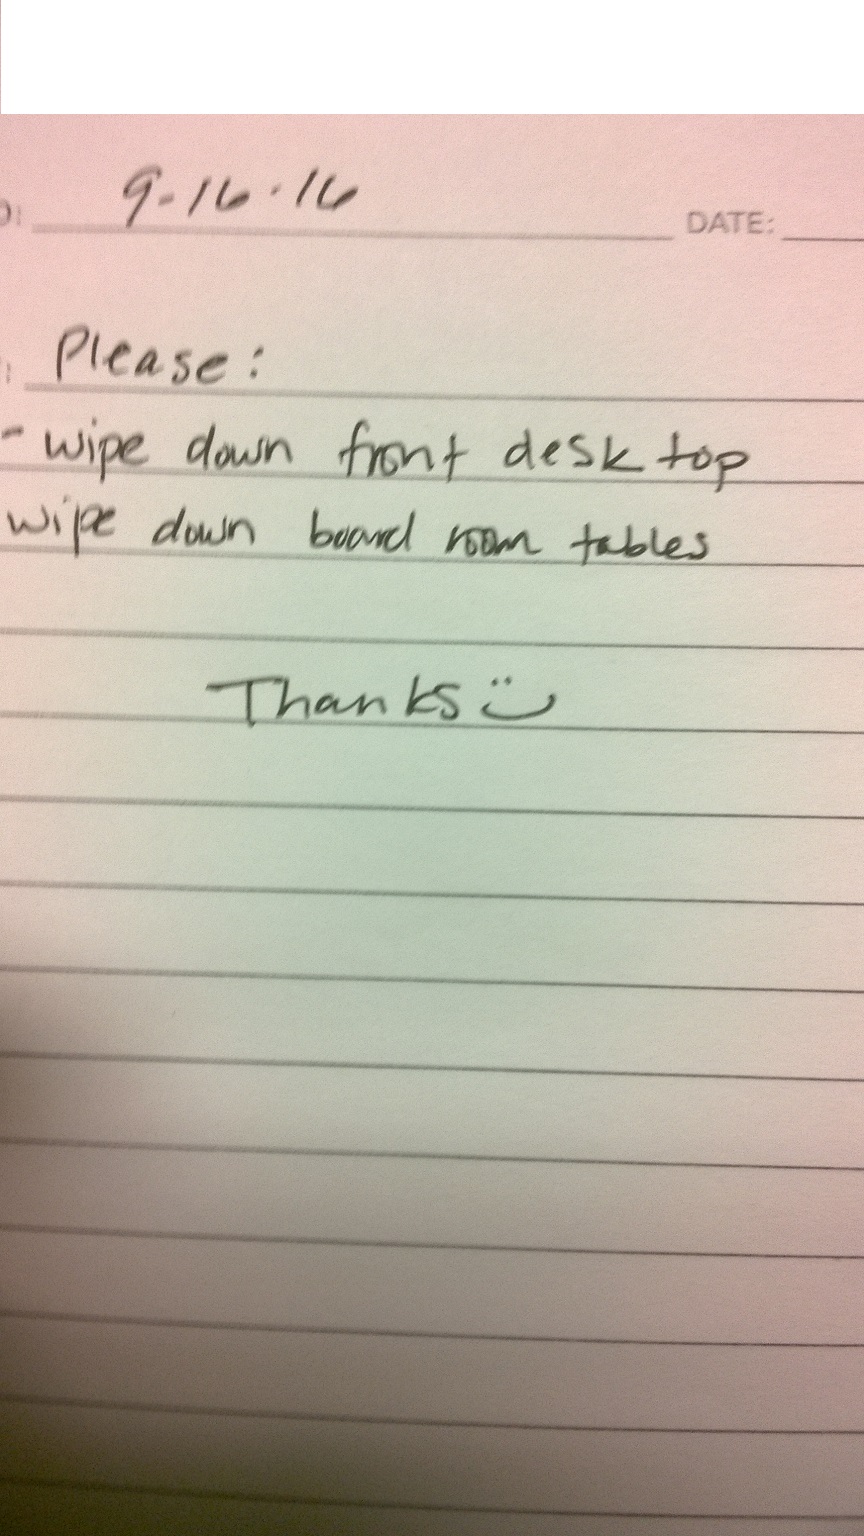 9-16-16
DATE:
Please:
- wipe down front desk top
wipe down board room tables
Thanks